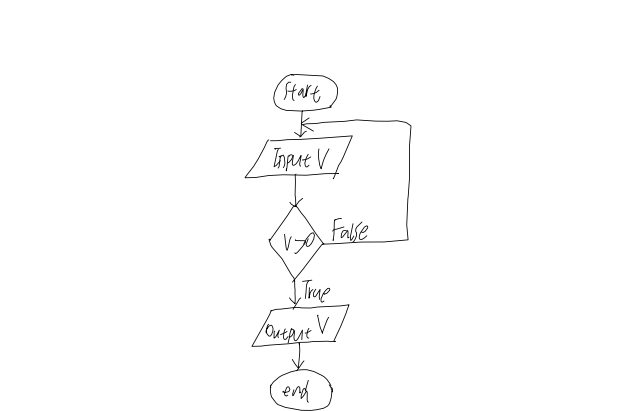 Start
Input V
V>0
False
True
Output V
end